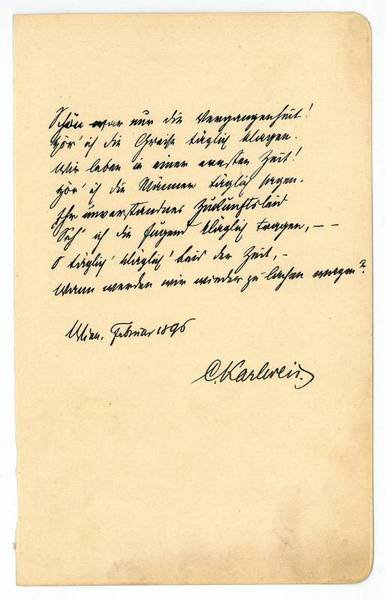 Schön war nur die Vergangenheit!
Hör' ich die Greise täglich klagen.
Wir leben in einer ernsten Zeit!
Hör' ich die Männer täglich sagen.
Ihr unverstandnes Zukunftsleid
Seh' ich die Jugend kläglich tragen, – –
O täglich' kläglich' Leid der Zeit, –
Wann werden wir wieder zu lachen wagen?
Wien, Februar 1896
C. Karlweis.